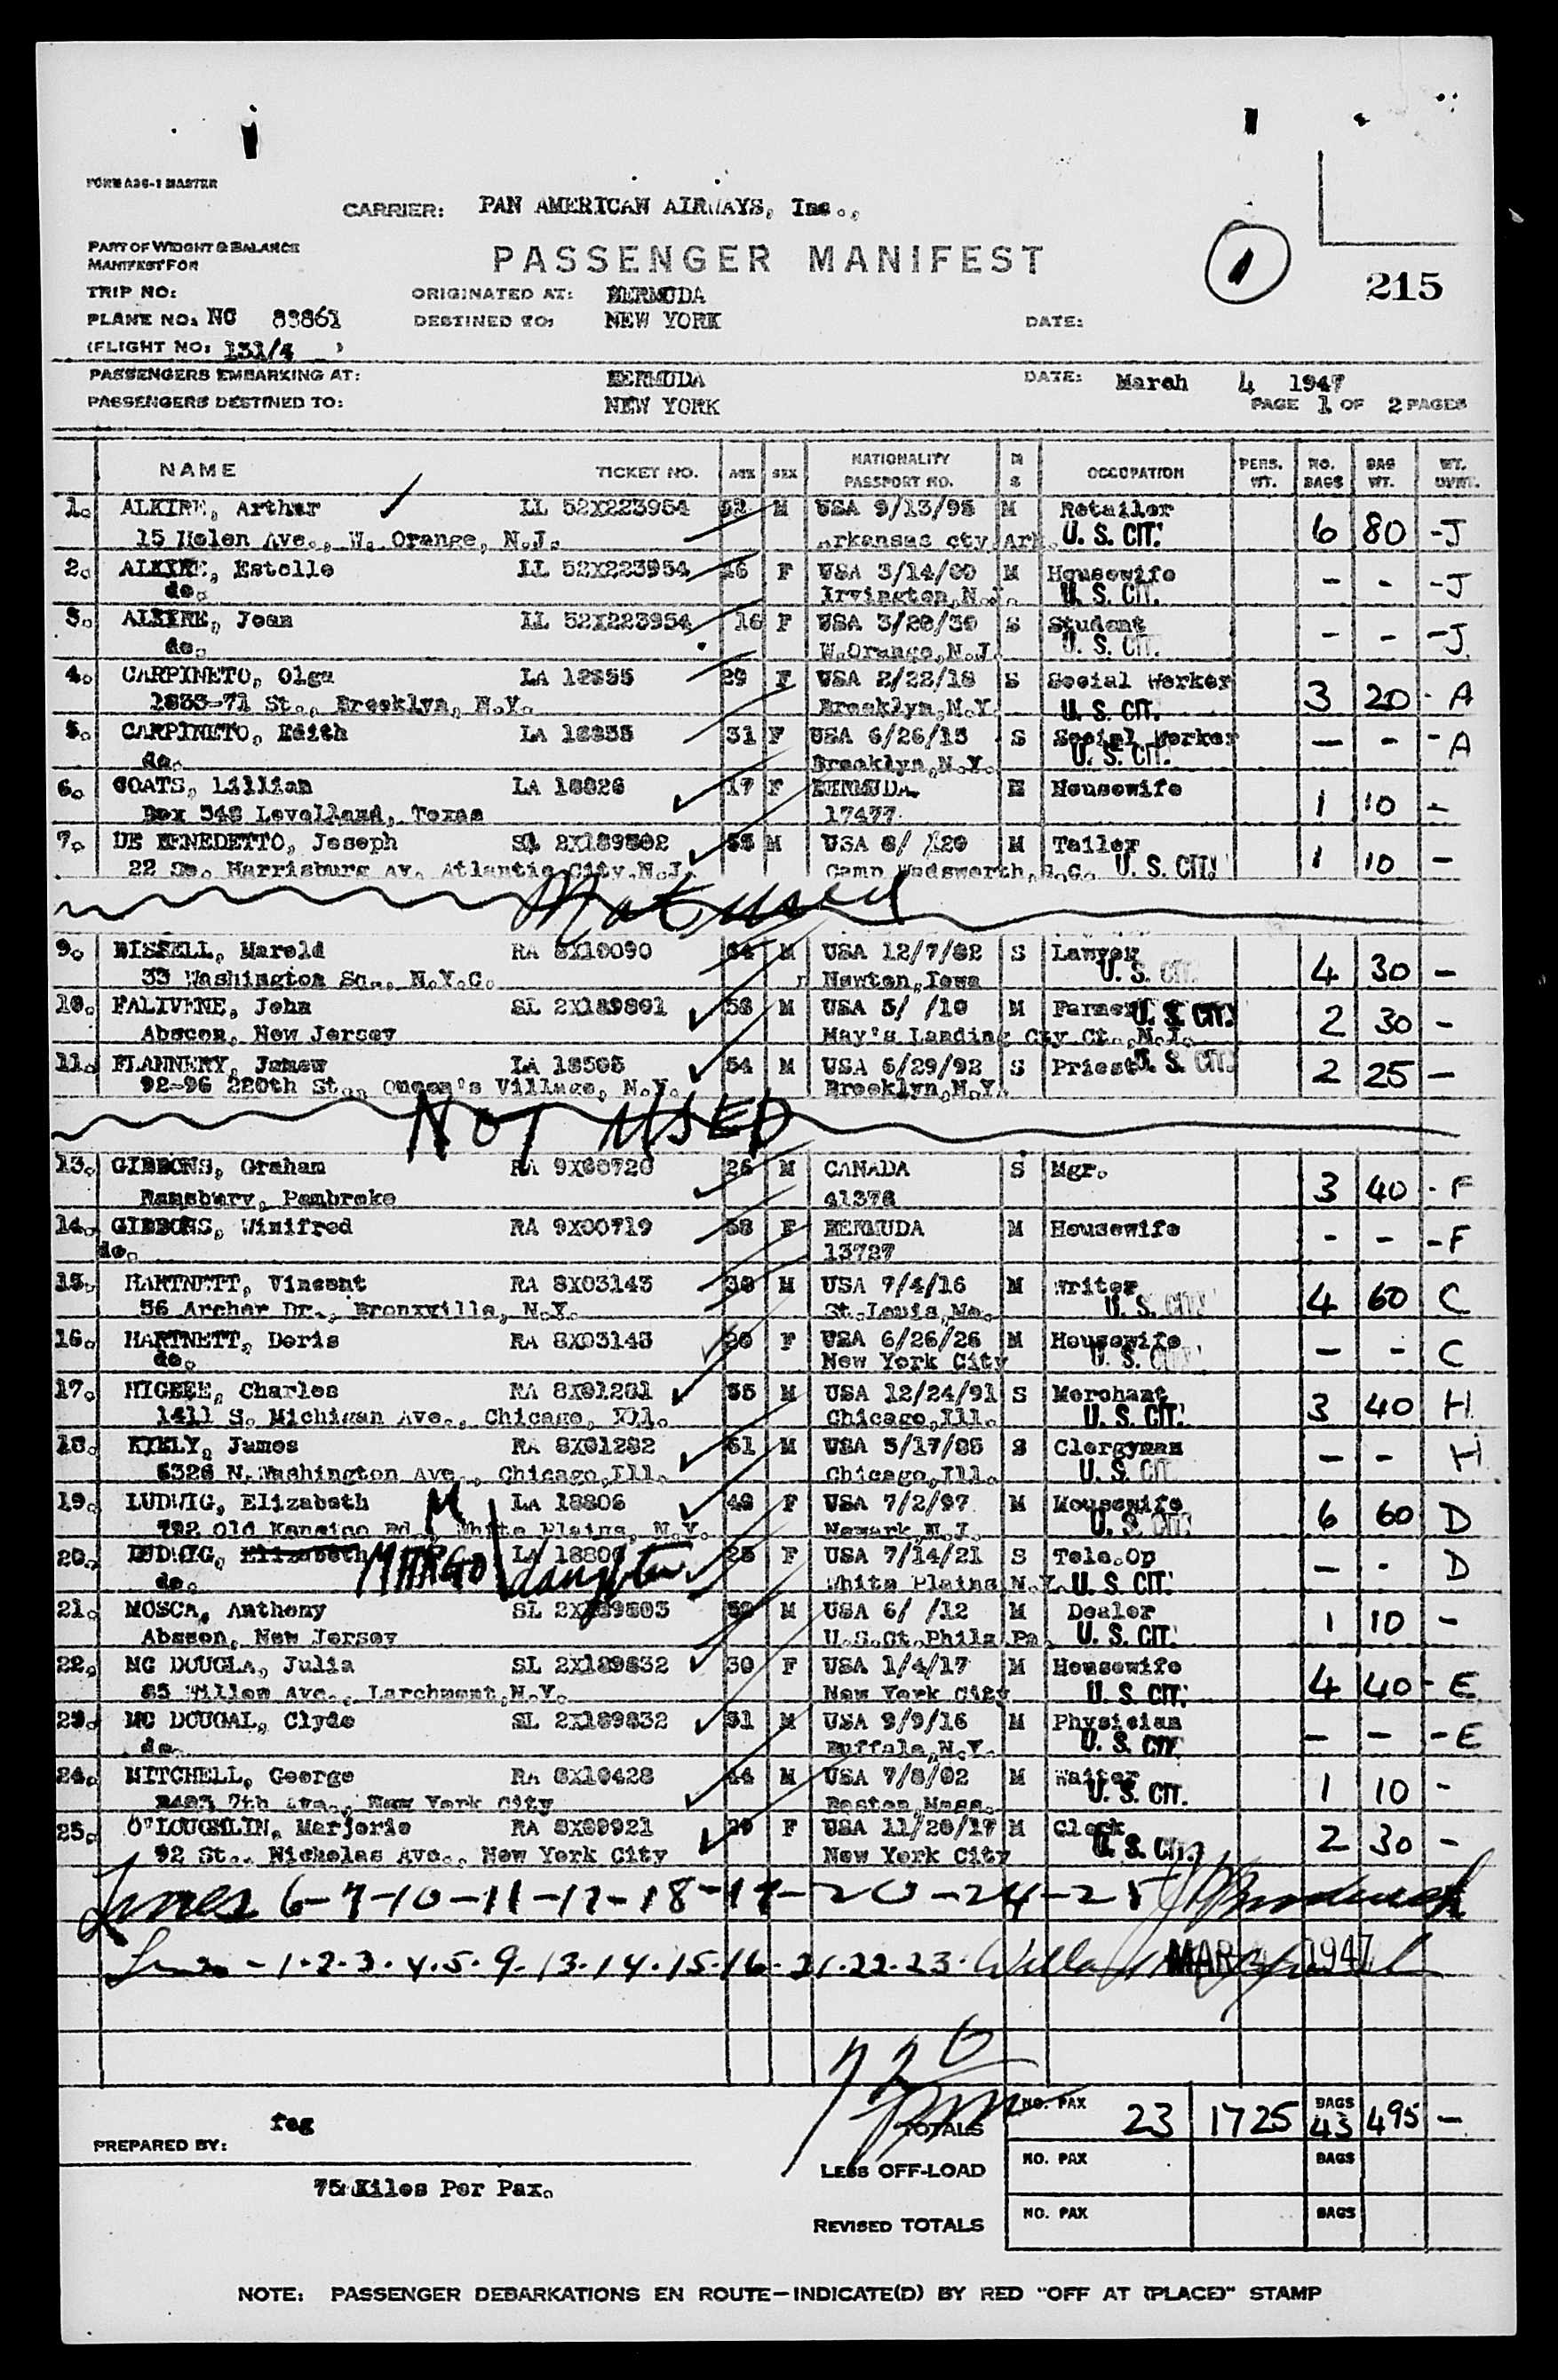 FORM A36-1 MASTER
CARRIER: PAN AMERICAN AIRWAYS, Inc.,
PART OF WEIGHT & BALANCE
MANIFEST FOR
PASSENGER MANIFEST
1
215
TRIP NO:
ORIGINATED AT: BERMUDA
PLANE NO: NC 88861
DESTINED TO: NEW YORK
DATE:
(FLIGHT NO: 131/4 )
PASSENGERS EMBARKING AT: BERMUDA DATE: March 4 1947
PASSENGERS DESTINED TO: NEW YORK PAGE 1 OF 2 PAGES
NAME TICKET NO. AGE SEX NATIONALITY PASSPORT NO. M S OCCUPATION PERS. WT. NO. BAGS BAG WT. WT. OVWT.
1. ALKIRE, Arthur LL 52X223954 M USA 9/13/95 M Retailer 6 80 -J
15 Helen Ave., W. Orange, N.J. Arkansas cty Ark. U. S. CIT.
2. ALKIRE, Estelle LL 52X223954 46 F USA 3/14/00 M Housewife - - -J
do. Irvington, N.J. U. S. CIT.
3. ALKIRE, Jean LL 52X223954 16 F USA 3/20/30 S Student - - -J
do. W. Orange, N.J. U. S. CIT.
4. CARPINETO, Olga LA 18855 29 F USA 2/22/18 S Social Worker 3 20 - A
1833-71 St., Brooklyn, N.Y. Brooklyn, N.Y. U. S. CIT.
5. CARPINETO, Edith LA 18855 31 F USA 6/26/15 S Social Worker - - - A
do. Brooklyn, N.Y. U. S. CIT.
6. COATS, Lillian LA 18826 17 F BERMUDA M Housewife 1 10 -
Box 548 Levelland, Texas 17477
7. DE BENEDETTO, Joseph SL 2X189802 M USA M Tailor 1 10 -
22 So. Harrisburg Av. Atlantic City, N.J. Camp Wadsworth, S.C. U. S. CIT.
Not used
9. BISSELL, Harold RA 8X10090 64 M USA 12/7/82 S Lawyer 4 30 -
33 Washington Sq., N.Y.C. Newton, Iowa U. S. CIT.
10. FALIVENE, John SL 2X189801 M USA 5/ /10 M Farmer 2 30 -
Abscon, New Jersey May's Landing Cty Ct., N.J. U. S. CIT.
11. FLANNERY, James LA 18505 54 M USA 6/29/92 S Priest U. S. CIT. 2 25 -
92-96 220th St., Queen's Village, N.Y. Brooklyn, N.Y.
NOT USED
13. GIBBONS, Graham RA 9X00720 26 M CANADA S Mgr. 3 40 - F
Pembroke 41378
14. GIBBONS, Winifred RA 9X00719 58 F BERMUDA M Housewife - - -F
do. 13727
15. HARTNETT, Vincent RA 8X03143 30 M USA 7/4/16 M Writer 4 60 C
56 Archer Dr., Bronxville, N.Y. St. Louis, Mo. U. S. CIT.
16. HARTNETT, Doris RA 8X03143 20 F USA 6/26/26 M Housewife - - C
do. New York City U. S. CIT.
17. HIGBEE, Charles RA 8X01281 55 M USA 12/24/91 S Merchant 3 40 H
1411 S. Michigan Ave., Chicago, Ill. Chicago, Ill. U. S. CIT.
18. KIELY, James RA 8X01282 61 M USA 5/17/85 S Clergyman - - H
6326 N. Washington Ave., Chicago, Ill. Chicago, Ill. U. S. CIT.
19. LUDWIG, Elizabeth M LA 18806 49 F USA 7/2/97 M Housewife 6 60 D
792 Old Kensico Rd., White Plains, N.Y. Newark, N.J. U. S. CIT.
20. LUDWIG, Elizabeth MARGO daughter LA 18806 25 F USA 7/14/21 S Tele. Op - - D
do. White Plains N.Y. U. S. CIT.
21. MOSCA, Anthony SL 2X189803 M USA 6/ /12 M Dealer 1 10 -
Abscon, New Jersey U.S. Ct. Phila Pa. U. S. CIT.
22. MC DOUGLA, Julia SL 2X189832 30 F USA 1/4/17 M Housewife 4 40 - E
85 Willow Ave., Larchmont, N.Y. New York City U. S. CIT.
23. MC DOUGAL, Clyde SL 2X189832 31 M USA 9/9/16 M Physician - - - E
do. Buffalo, N.Y. U. S. CIT.
24. MITCHELL, George RA 8X10428 44 M USA 7/8/02 M Waiter 1 10 -
7th Ave., New York City Boston, Mass. U. S. CIT.
25. O'LOUGHLIN, Marjorie RA 8X09921 29 F USA 11/20/17 M Clerk 2 30 -
92 St. Nicholas Ave., New York City New York City U. S. CIT.
Lines 6-7-10-11-17-18-19-20-24-25
Lines - 1.2.3.4.5.9.13.14.15.16.21.22.23. MAR 1947
720 PM
TOTALS NO. PAX 23 1725 BAGS 43 495 -
feg
PREPARED BY:
LESS OFF-LOAD NO. PAX BAGS
75 Kilos Per Pax.
REVISED TOTALS NO. PAX BAGS
NOTE: PASSENGER DEBARKATIONS EN ROUTE—INDICATE(D) BY RED "OFF AT (PLACE)" STAMP